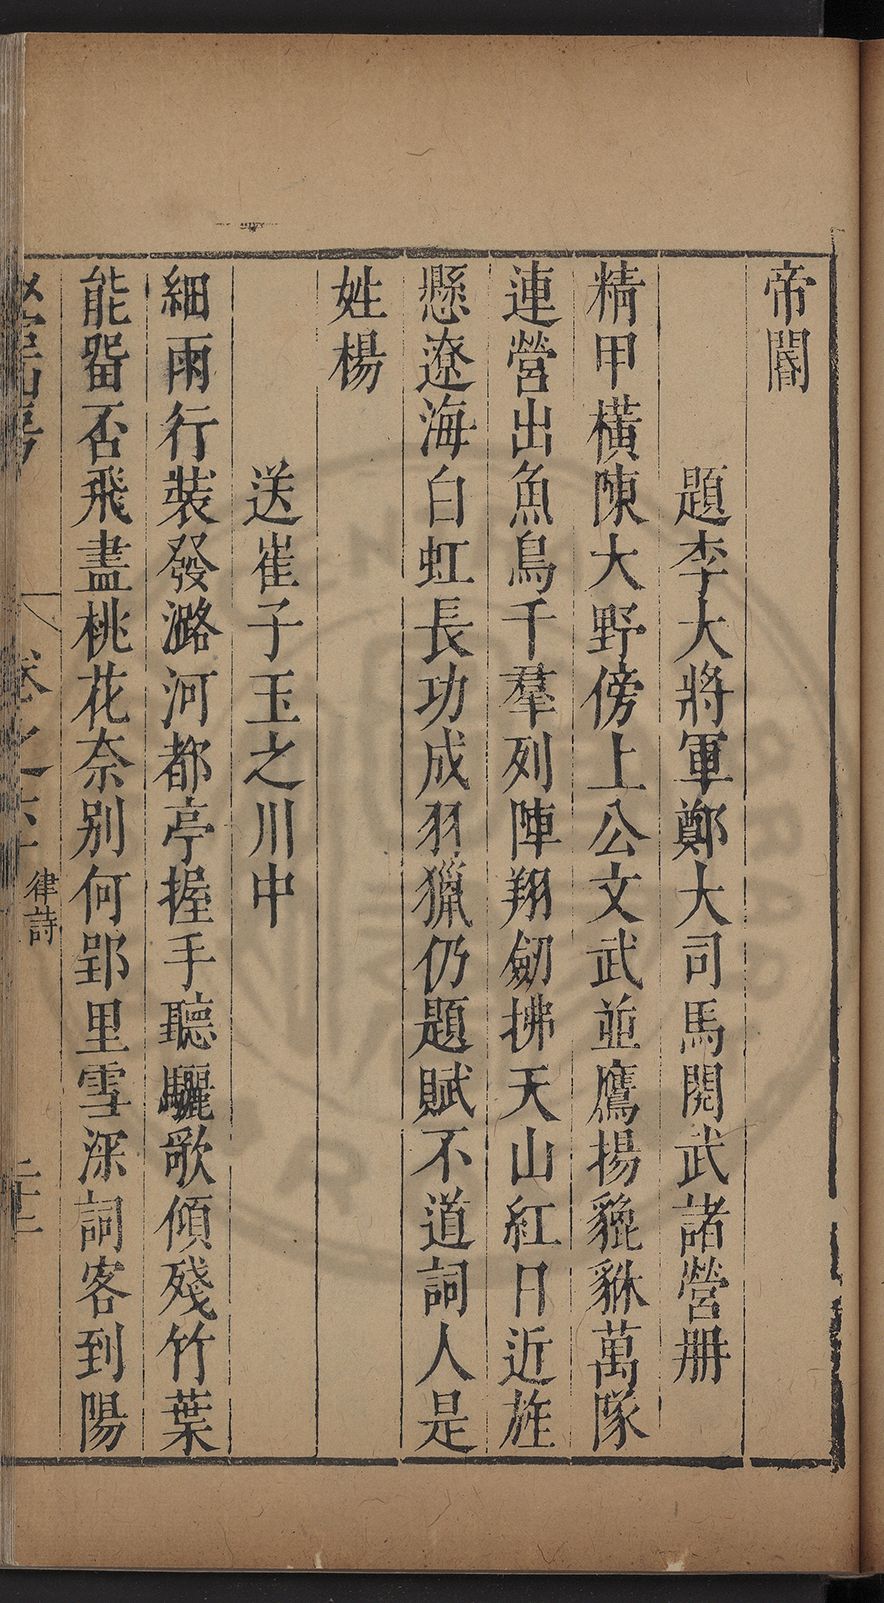 帝閽
題李大將軍鄭大司馬閱武諸營册
精甲橫陳大野傍上公文武並鷹揚貔貅萬隊
連營出魚鳥千羣列陣翔劒拂天山紅日近旌
懸遼海白虹長功成羽獵仍題賦不道詞人是
姓楊
送崔子玉之川中
細雨行裝發潞河都亭握手聽驪歌傾殘竹葉
能畱否飛盡桃花奈別何郢里雪深詞客到陽
卷之
律詩